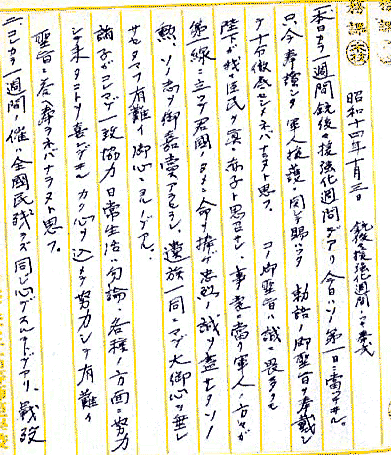 昭和十四年十月三日
銃後々援強化週間ニツキ奉戴
本日ヨリ一週間銃後々援強化週間デアリ今日ハソノ第一日ニ當リマス。
只今奉讀シタ軍人援護ニ関シ賜ハツタ勅語ノ御聖旨ヲ奉戴シ
テ十分徹底シメネバナラヌト思フ。コノ御聖旨ハ誠ニ畏多クモ
陛下ガ我々臣民ヲ真ニ赤子ト思召サレ、事変ニ當リ軍人ノ方々ガ
第一線ニ立チ君国ノタメニ命ヲ捧ゲ忠烈ノ誠ヲ盡サレタソノ
勲、ソノ志ヲ御嘉賞アラセラレ、遺族一同ニマデ大御心ヲ垂レ
サセタマフ有難イ御心ニヨルノデアル。
諸子ガコレマデ一致協力日常生活ハ勿論、各種ノ方面ニ努力
シテ来タコトヲ喜ンデヰルガ一層心ヲ込メテ努力シテ有難イ
聖旨ニ答ヘ奉ラネバナラヌト思フ。
コレカラ一週間ノ催ハ全國民残ラズ同ジ心デスルコトデアリ、戰歿